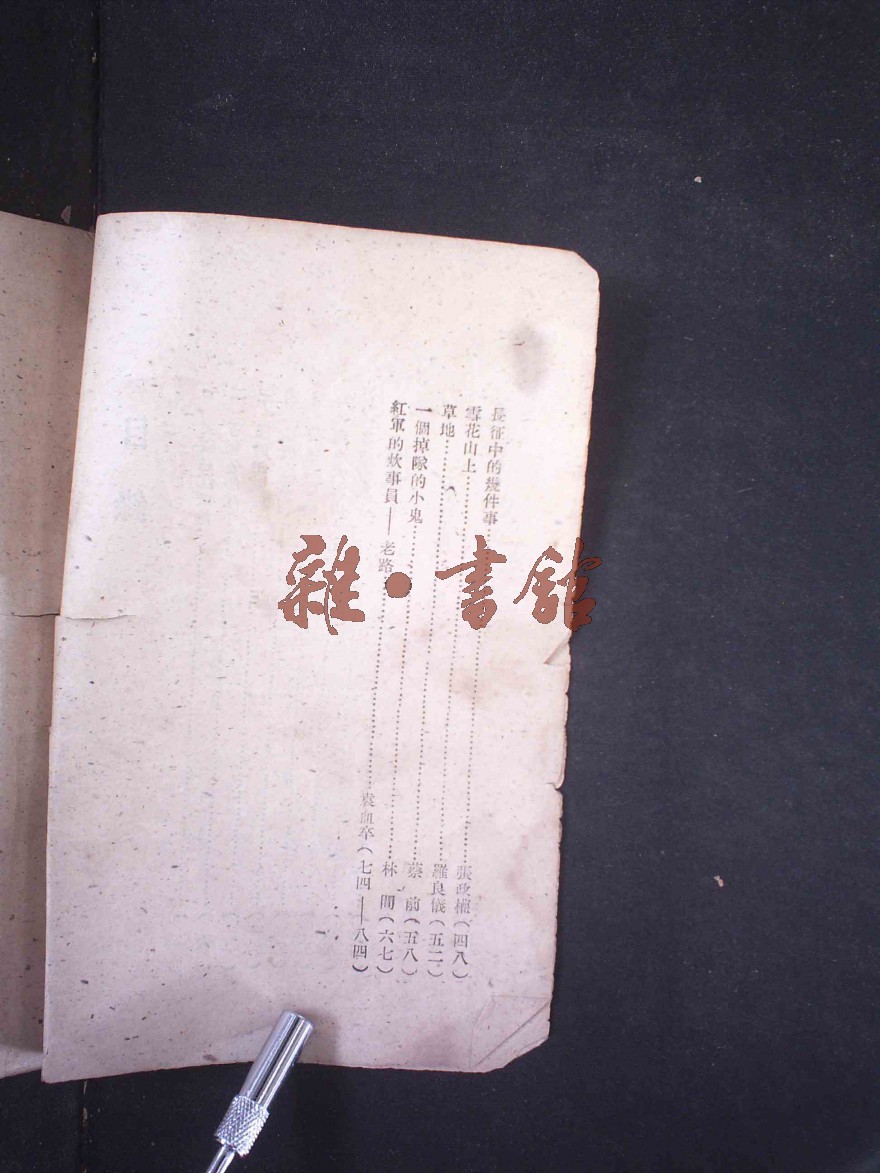 長征中的幾件事……張政權(四八)
雪花山上……羅良儀(五二)
草地……蔡　前(五八)
一個掉隊的小鬼……林　間(六七)
紅軍的炊事員——老路……袁血卒(七四——八四)
雜·書館
目錄